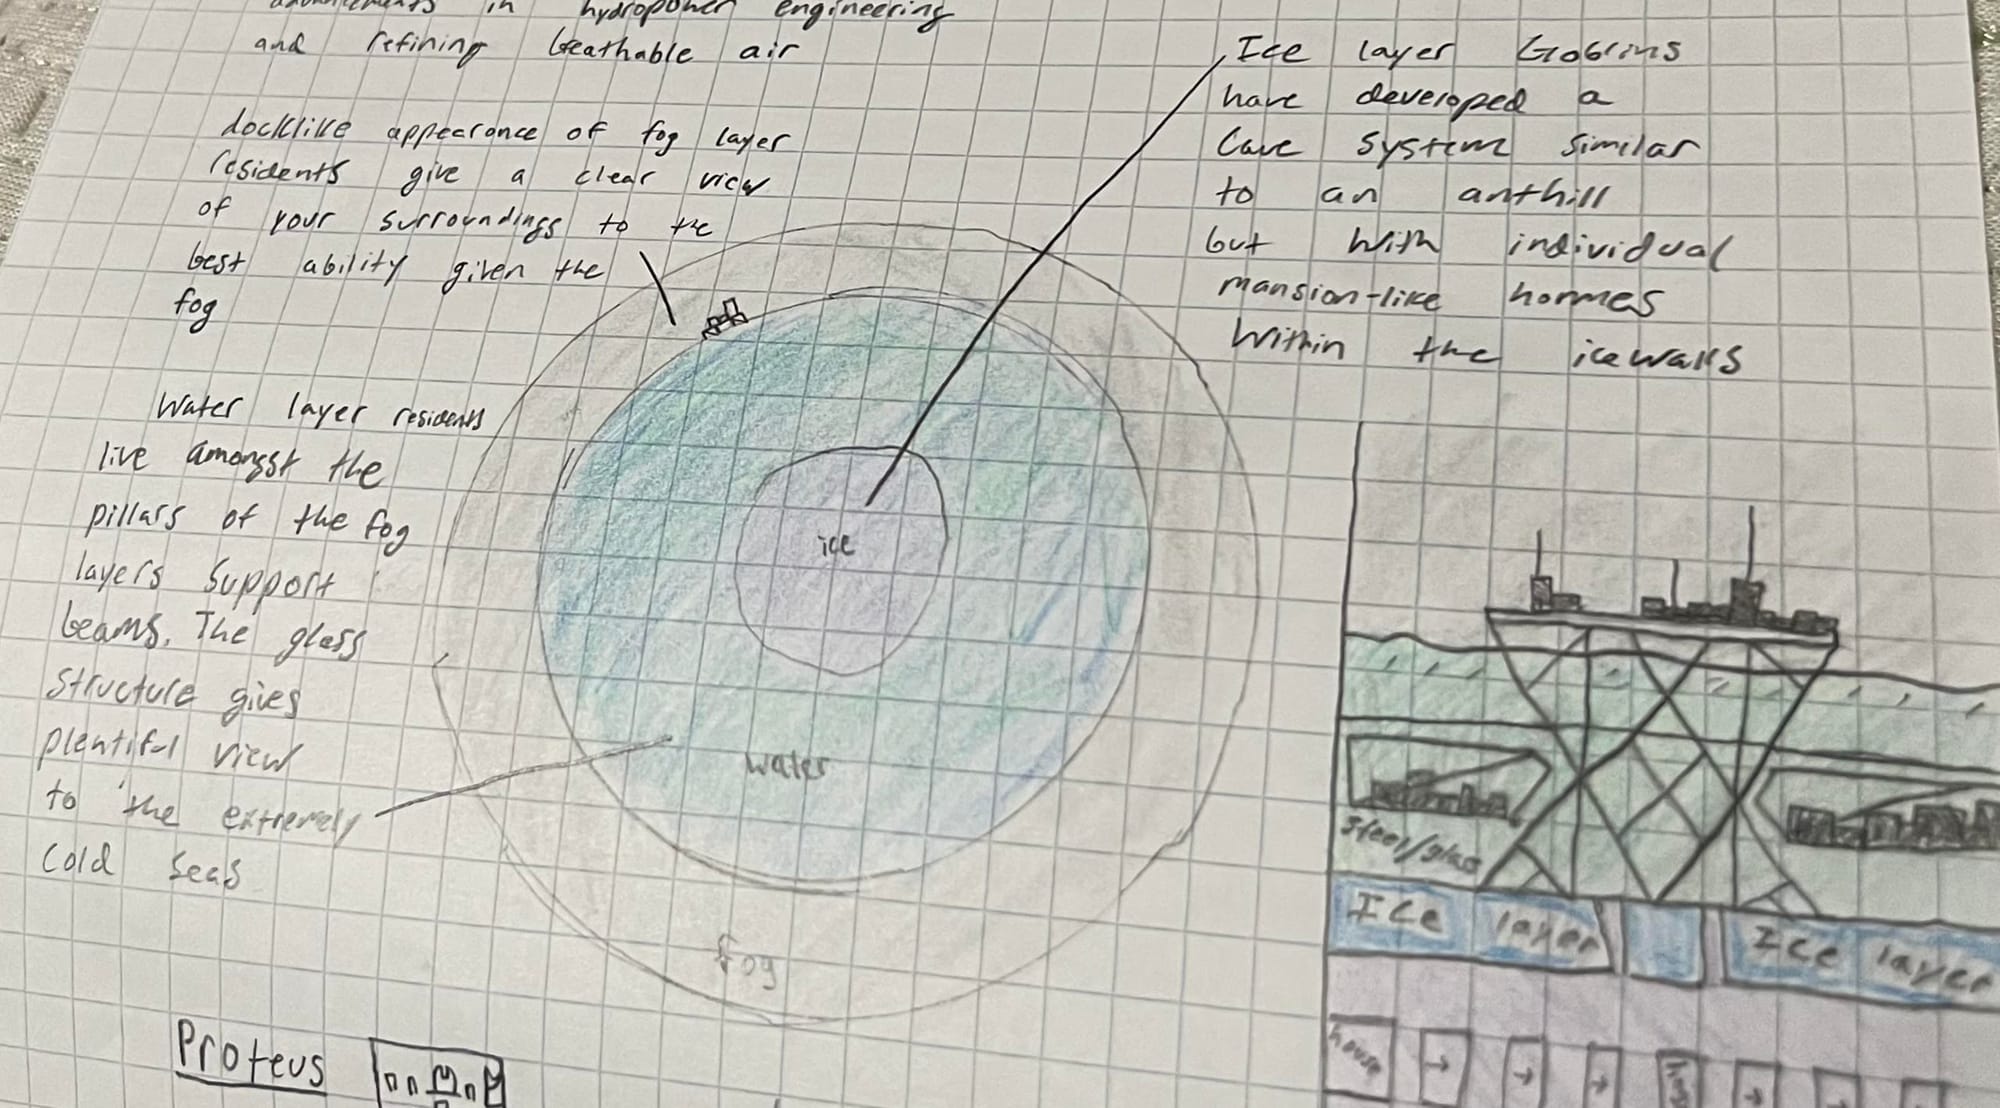 advancements in hydropower engineering
and refining breathable air
docklike appearance of fog layer
residents give a clear view
of your surroundings to the
best ability given the
fog
Water layer residents
live amongst the
pillars of the fog
layers support
beams. The glass
structure gives
plentiful view
to the extremely
cold seas
Ice layer Goblins
have developed a
cave system similar
to an anthill
but with individual
mansion-like hommes
within the ice walls
ice
water
fog
steel/glass
Ice layer
Ice layer
house
→ → →
→
Proteus